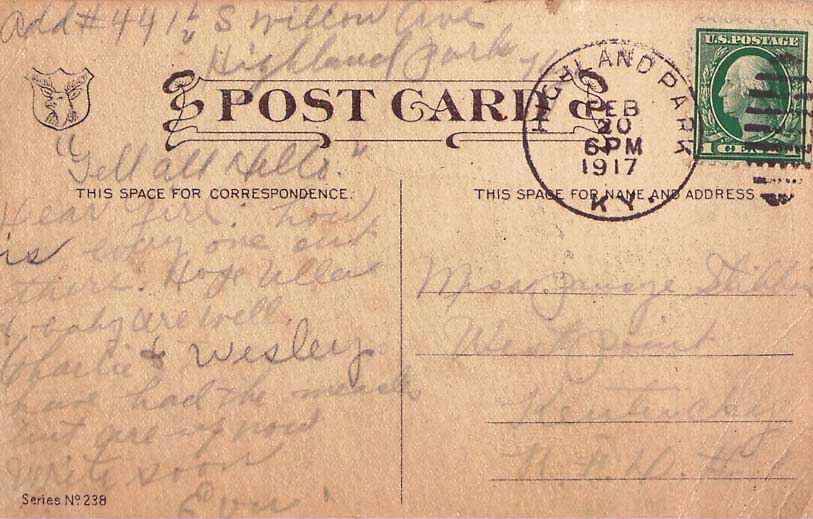 Add # 4416 S Willow Ave
Highland Park Ky
POST CARD
HIGHLAND PARK
FEB
20
6 PM
1917
KY.
U.S. POSTAGE
1 CENT
"Tell all Hello."
THIS SPACE FOR CORRESPONDENCE.
THIS SPACE FOR NAME AND ADDRESS
Dear Girl: how
is every one out
there. Hope
& baby are well.
Charlie & Wesley
have had the measels
but are up now
Write soon
Miss
West Point
Kentucky
R.F.D. # 1
Series No 238